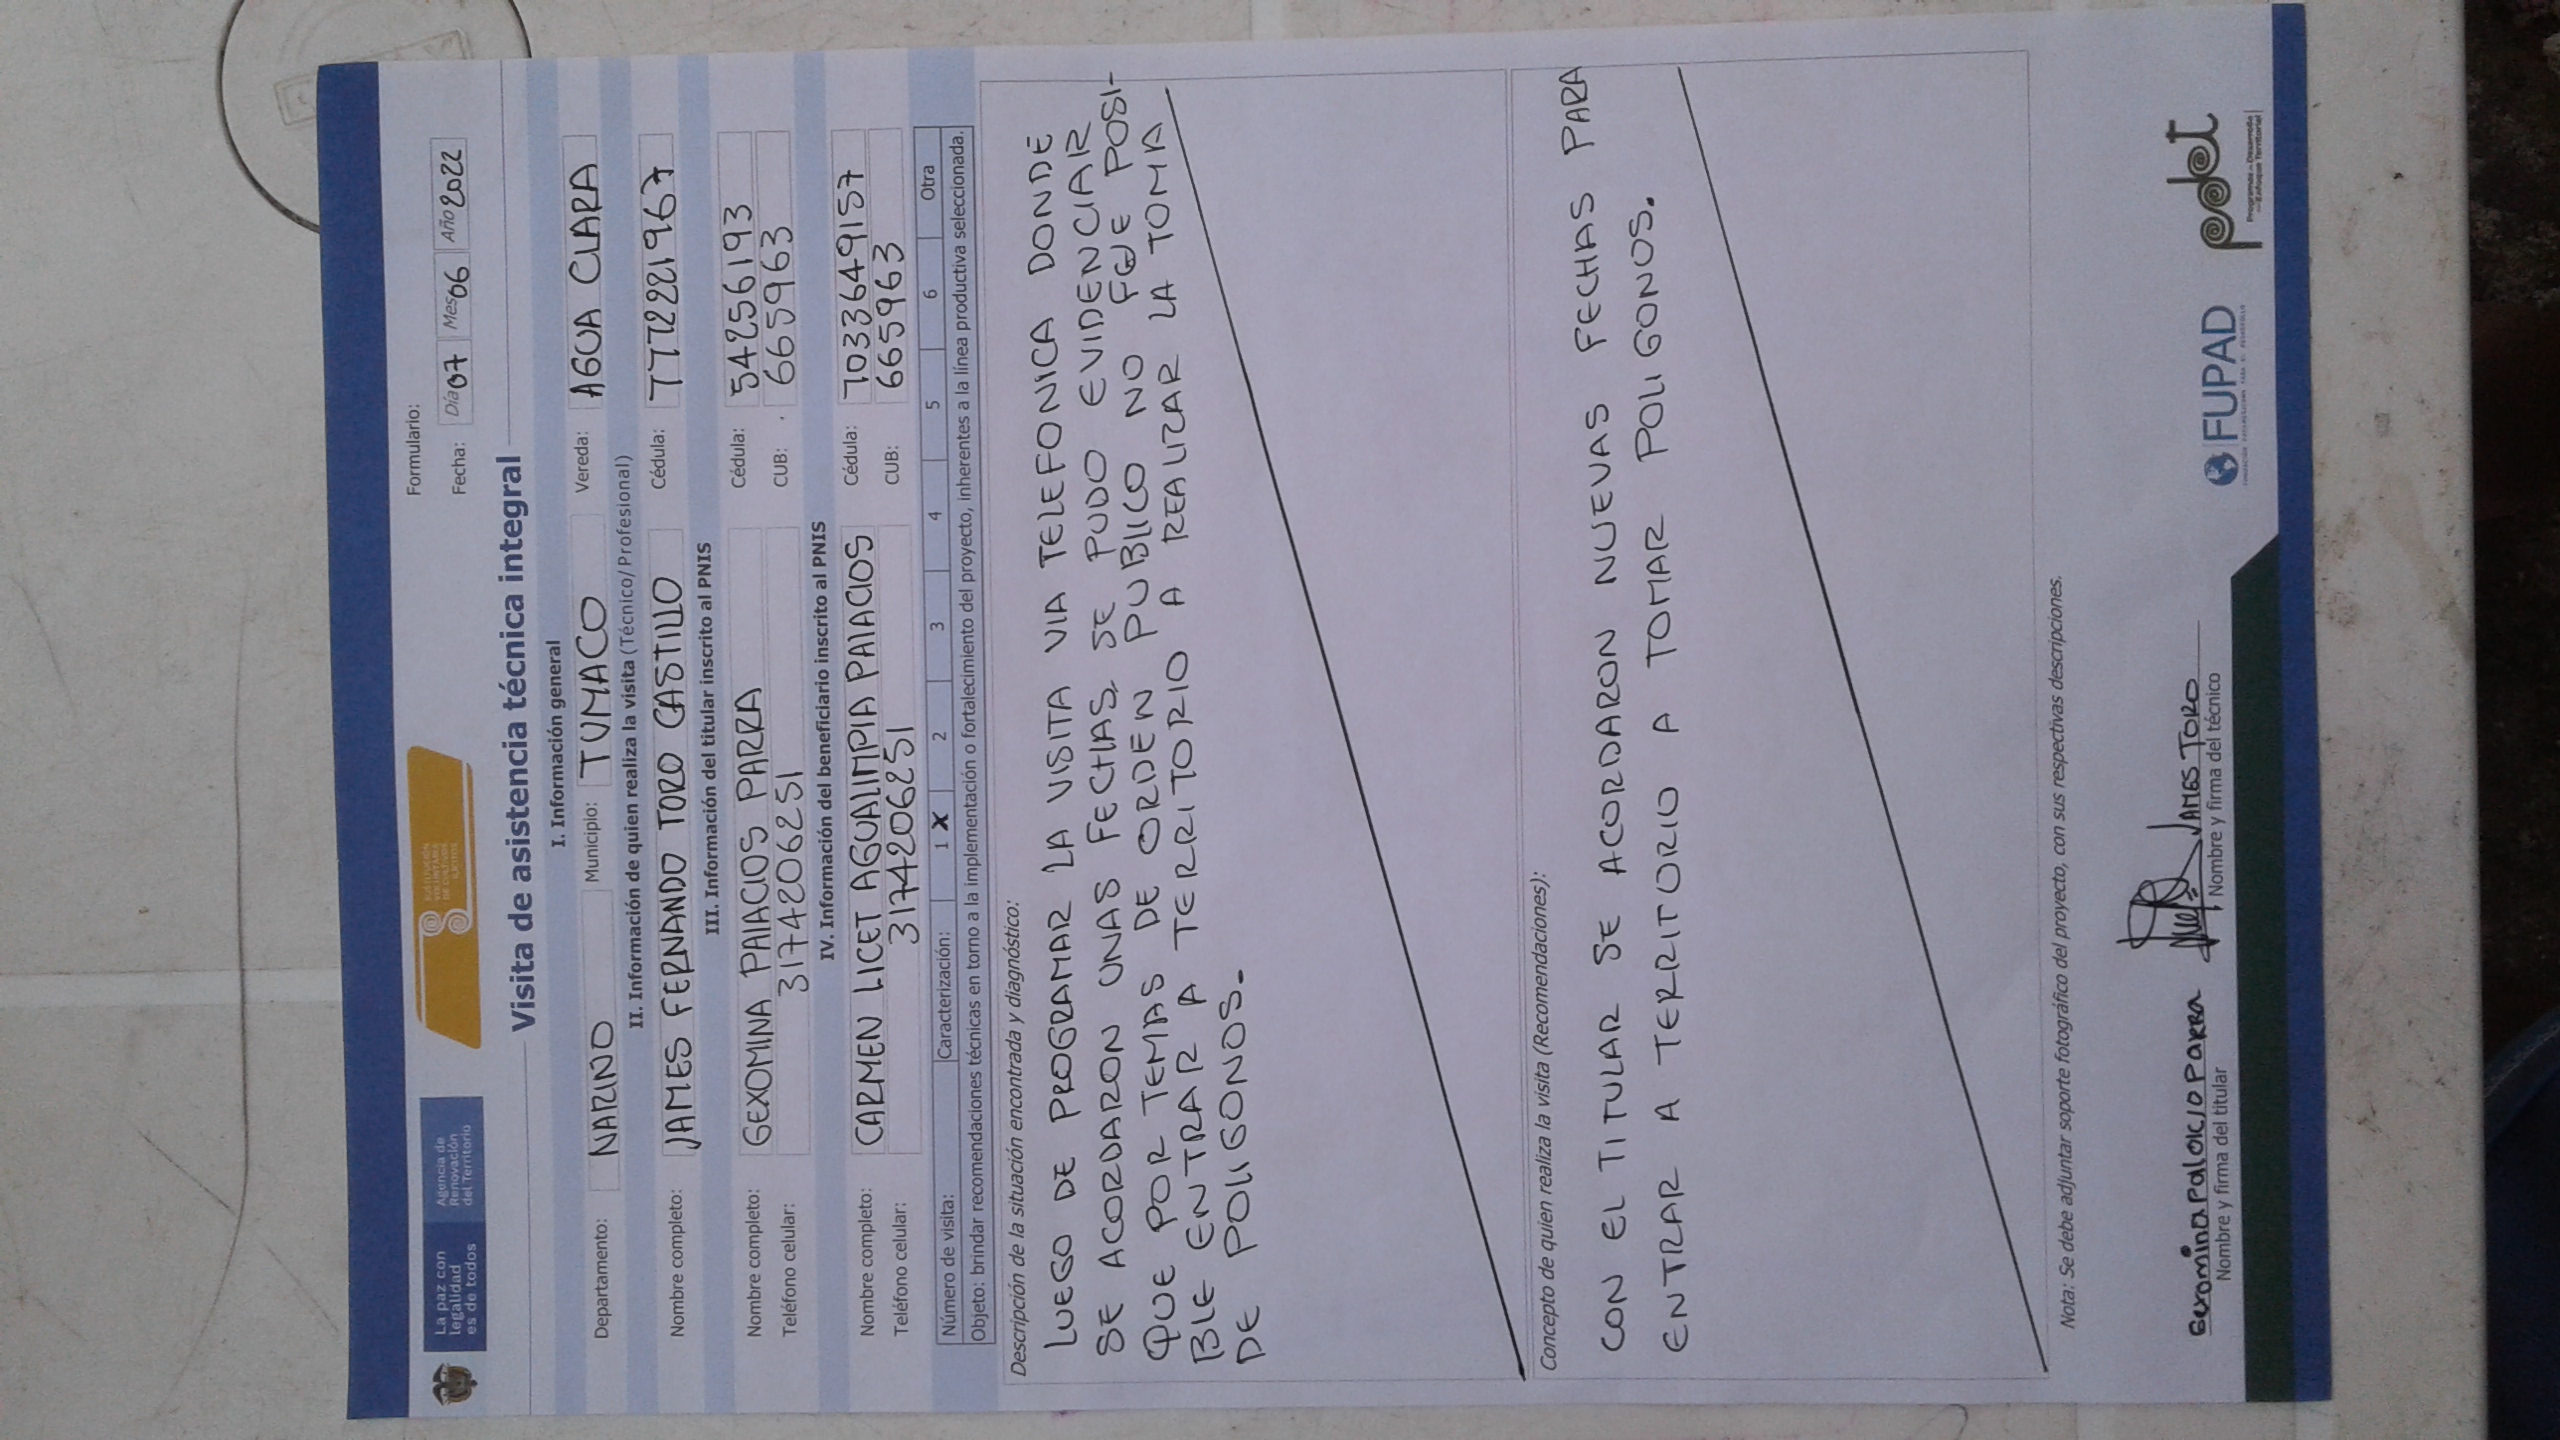 La paz con
legalidad
es de todos
Agencia de
Renovación
del Territorio
SUSTITUCIÓN
VOLUNTARIA
DE CULTIVOS
ILÍCITOS
Formulario:
Fecha: Día 07 Mes 06 Año 2022
Visita de asistencia técnica integral
I. Información general
Departamento: NARINO Municipio: TUMACO Vereda: AGUA CLARA
II. Información de quien realiza la visita (Técnico/Profesional)
Nombre completo: JAMES FERNANDO TORO CASTILLO Cédula: 7772221967
III. Información del titular inscrito al PNIS
Nombre completo: GEXOMINA PALACIOS PARRA Cédula: 54256193
Teléfono celular: 3174206251 CUB: 665963
IV. Información del beneficiario inscrito al PNIS
Nombre completo: CARMEN LICET AGUALIMPIA PALACIOS Cédula: 1033649157
Teléfono celular: 3174206251 CUB: 665963
Número de visita: Caracterización: 1 X 2 3 4 5 6 Otra
Objeto: brindar recomendaciones técnicas en torno a la implementación o fortalecimiento del proyecto, inherentes a la línea productiva seleccionada.
Descripción de la situación encontrada y diagnóstico:
LUEGO DE PROGRAMAR LA VISITA VIA TELEFONICA DONDE
SE ACORDARON UNAS FECHAS, SE PUDO EVIDENCIAR
QUE POR TEMAS DE ORDEN PUBLICO NO FUE POSI-
BLE ENTRAR A TERRITORIO A REALIZAR LA TOMA
DE POLIGONOS.
Concepto de quien realiza la visita (Recomendaciones):
CON EL TITULAR SE ACORDARON NUEVAS FECHAS PARA
ENTRAR A TERRITORIO A TOMAR POLIGONOS.
Nota: Se debe adjuntar soporte fotográfico del proyecto, con sus respectivas descripciones.
Gexomina Palacio Parra
Nombre y firma del titular
JAMES TORO
Nombre y firma del técnico
FUPAD
pdet
Programas de Desarrollo
con Enfoque Territorial